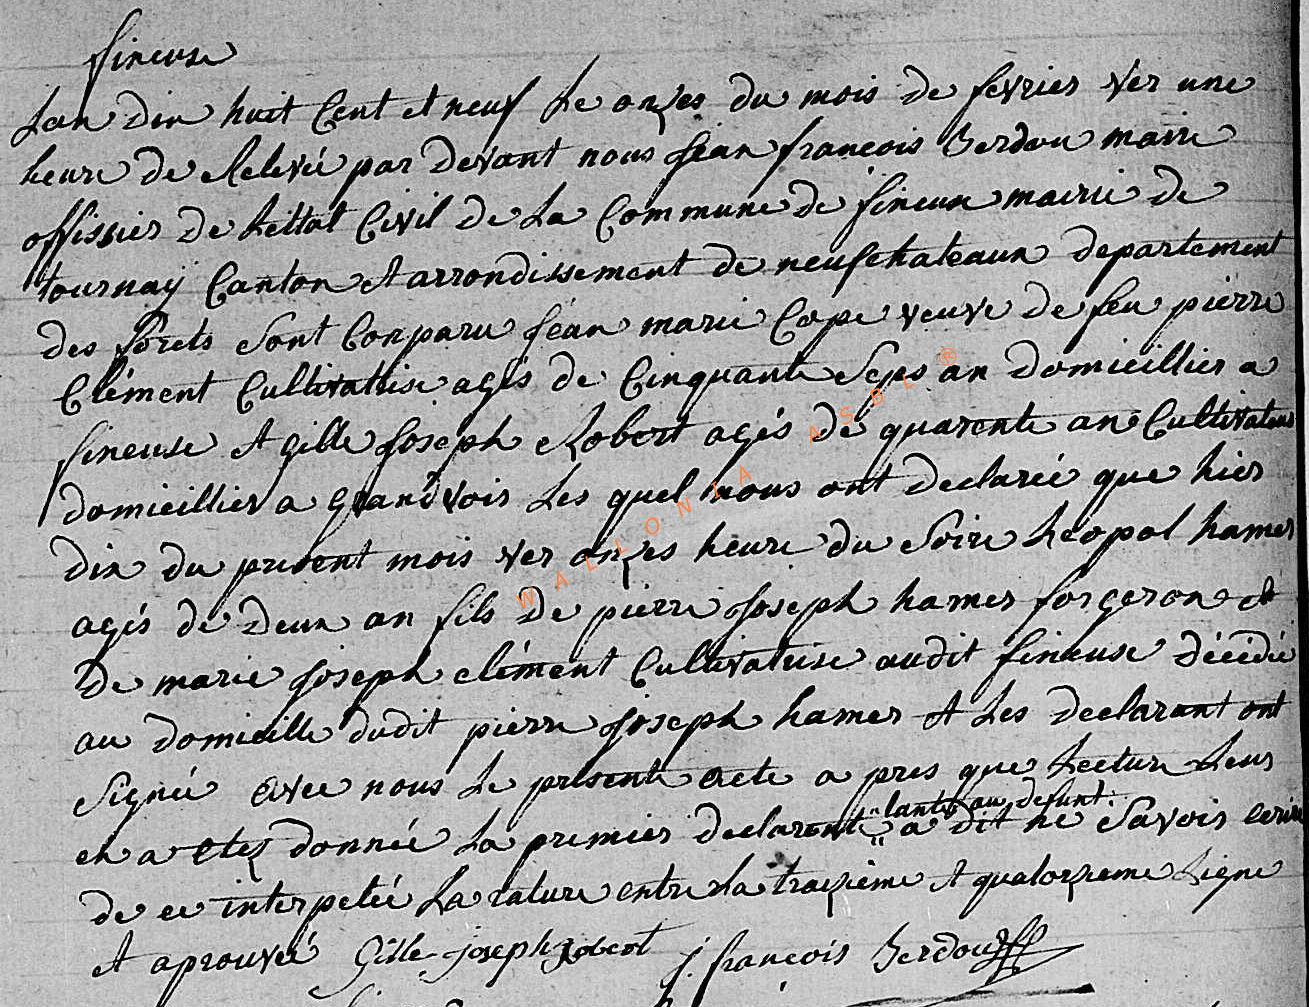 fineuse
Lan dix huit Cent et neuf Le onzes du mois de fevrier ver une
heure de Relevée par devant nous Jean françois Berdou maire
offissier de Lettat Civil de La Commune de fineux mairie de
tournay Canton et arrondissement de neufchateaux departement
des forets Sont Conparu Jéan marie Cope veuve de feu pierre
Clément Cultivattrise agés de Cinquante Seps an domicillier a
fineuse et gille Joseph Robert agés de quarente ane Cultivateur
domicillier a grandvoir Les quel nous ont declarée que hier
dix du present mois ver onzes heure du Soire Léopol hamer
agés de deux an fils de pierre Joseph hamer forgeron et
De marie Joseph clément Cultivatrise audit fineuse décédée
au domicille dudit pierre Joseph hamer et Les declarant ont
Signée avec nous Le presente acte a pres que Lecture Leur
en a etez donnée La premier declarante "lante au defunt" a dit ne Savoir ecrire
de ce interpelée La rature entre La traizième et quatorzieme Ligne
et aprouvée Gille-joseph robert j. françois Berdou
WALLONIA ASBL ®